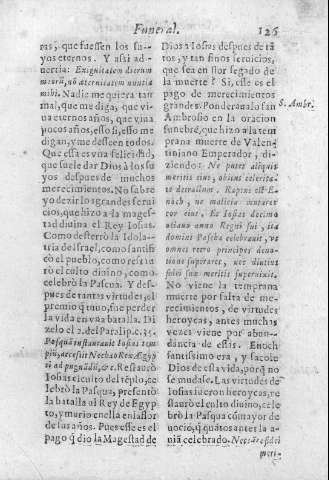 Funeral. 125
ras, que fuessen los su-
yos eternos. Y assi ad-
uertia: Exiguitatem dierum
meorũ, nõ æternitatem nuntia
mihi. Nadie me quiera tan
mal, que me diga, que vi-
ua eternos años, que viua
pocos años, esso si, esso me
digan, y me desseen todos.
Que essa es vna felicidad,
que suele dar Dios à los su
yos despues de muchos
merecimientos. No sabre
yo dezir los grandes serui
cios, que hizo a la mages-
tad diuina el Rey Iosias.
Como desterrò la Idola-
tria de Israel, como santifi
cò el pueblo, como restau
rò el culto diuino, como
celebrò la Pascua. Y des-
pues de tantas virtudes, el
premio q̃ tuuo, fue perder
la vida en vna batalla. Di
zelo el 2. del Paralip. c. 35.
Postquã instaurauit Iosias tem
plũ, ascendit Nechao Rex Ægyp
ti ad pugnãdũ, &c. Restaurò
Iosias el culto del tẽplo, ce
lebrò la Pasqua, presentò
la batalla al Rey de Egyp
to, y murio en ella en la flor
de los años. Pues esse es el
pago q̃ dio la Magestad de
Dios a Iosias despues de tã
tos, y tan finos seruicios,
que sea en flor segado de
la muerte? Si, esse es el
pago de merecimientos
grandes. Ponderaualo san
S. Ambr.
Ambrosio en la oracion
funebre, que hizo a la tem
prana muerte de Valen-
tiniano Emperador, di-
ziendo: Ne putet aliquis
meritis eius, obitus celerita-
te detractum. Raptus est E-
noch, ne malicia mutaret
cor eius. Et Iosias decimo
octauo anno Regni sui, ita
domini Pascha celebrauit, ut
omnes retro principes deuo-
tione superaret, nec diutius
fidei suæ meritis superuixit.
No viene la temprana
muerte por falta de me-
recimientos, de virtudes
heroycas, antes muchas
vezes viene por abun-
dancia de estis. Enoch
santissimo era, y sacole
Dios de esta vida, porq̃ no
se mudase. Las virtudes de
Iosias fueron heroycas, re
staurò el culto diuino, cele
brò la Pasqua cõ mayor de
uociõ, q̃ quãtos ante la a-
uiã celebrado.
meri-